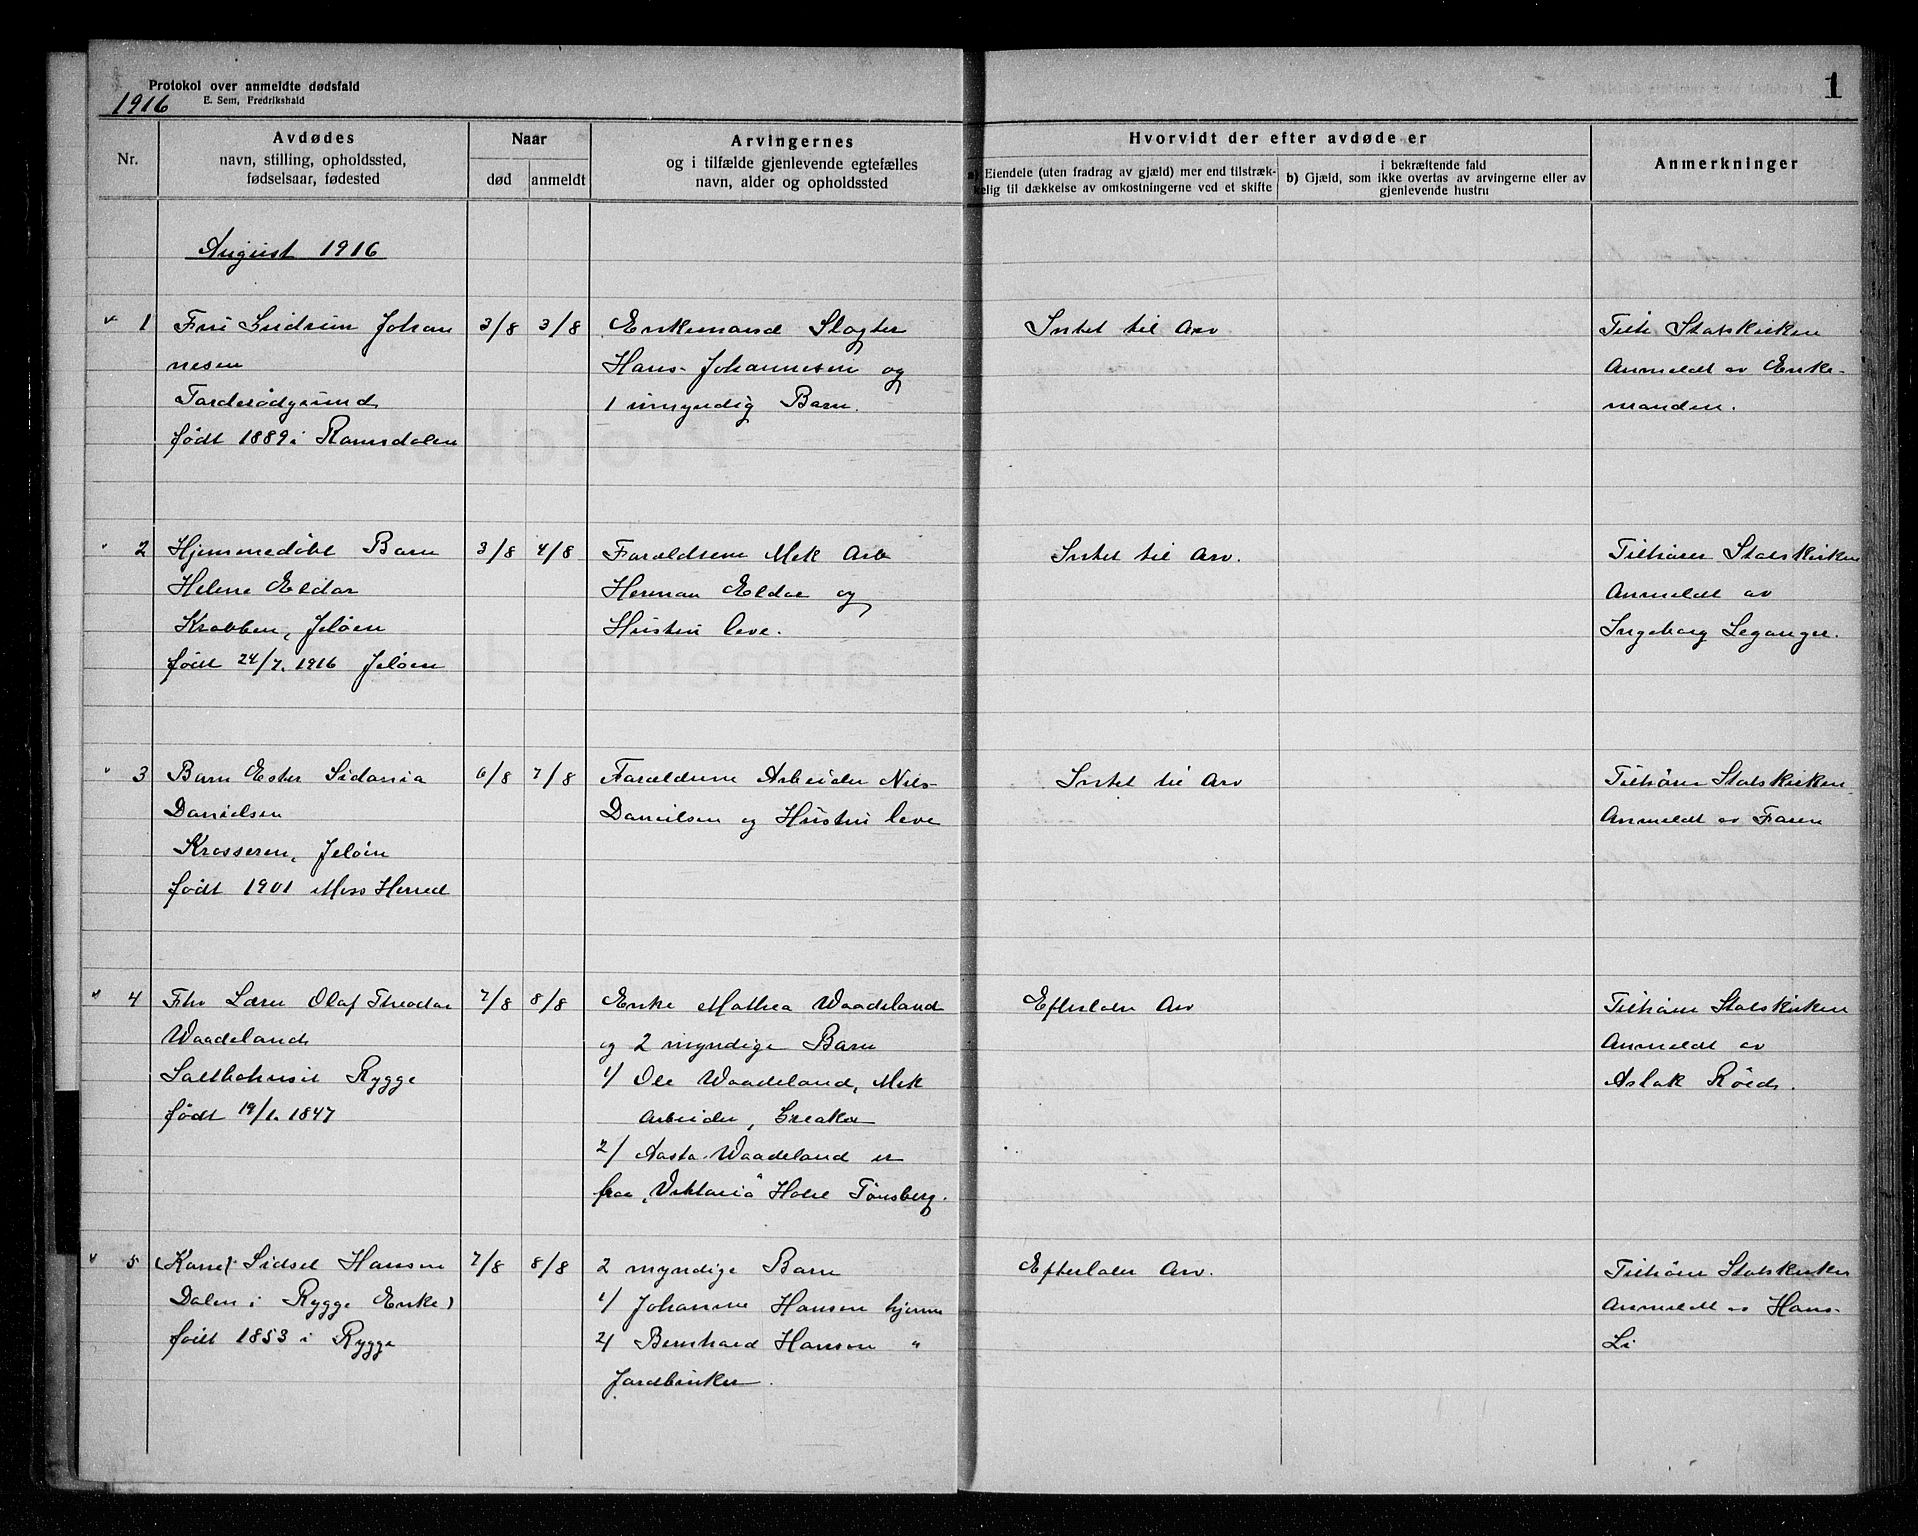 Protokol over anmeldte dødsfald
E. Sem, Fredrikshald
1916
1
Nr.
Avdødes
navn, stilling, opholdssted,
fødselsaar, fødested
Naar
død
anmeldt
Arvingernes
og i tilfælde gjenlevende egtefælles
navn, alder og opholdssted
Hvorvidt der efter avdøde er
a) Eiendele (uten fradrag av gjæld) mer end tilstræk-
kelig til dækkelse av omkostningerne ved et skifte
i bekræftende fald
b) Gjæld, som ikke overtas av arvingerne eller av
gjenlevende hustru
Anmerkninger
August 1916
1
Fru Gudrun Johan
nesen
Tarderødgrund
født 1889 i Romsdalen
3/8
3/8
Enkemand Slagter
Hans Johannesen og
1 umyndig Barn.
Intet til Arv
Tilh Statskirken
Anmeldt av Enke-
manden.
2
Hjemmedøbt Barn
Helene Eldar
Krabben, Jeløen
født 24/7. 1916 Jeløen
3/8
4/8
Forældrene Mek Arb
Herman Eldar og
Hustru leve.
Intet til Arv.
Tilhører Statskirken
Anmeldt av
Ingeborg Leganger.
3
Barn Ester Sidonia
Danielsen
Krosseren, Jeløen
født 1901 Moss Herred
6/8
7/8
Forældrene Arbeider Nils
Danielsen og Hustru leve
Intet til Arv
Tilhører Statskirken
Anmeldt av Faren
4
Fhv Lærer Olaf Theodor
Waadeland
Saltbohuset Rygge
født 19/1. 1847
7/8
8/8
Enke Mathea Waadeland
og 2 myndige Barn
1/ Ole Waadeland, Mek
Arbeider, Greaker
2/ Aasta Waadeland er
paa "Viktoria" Hotel Tønsberg.
Efterlader Arv
Tilhører Statskirken
Anmeldt av
Aslak Røed.
5
(Kone) Sidsel Hansen
Dalen i Rygge Enke)
født 1853 i Rygge
7/8
8/8
2 myndige Barn
1/ Johanne Hansen hjemme
2/ Bernhard Hansen "
Jordbruker.
Efterlader Arv.
Tilhører Statskirken
Anmeldt av Hans
Li